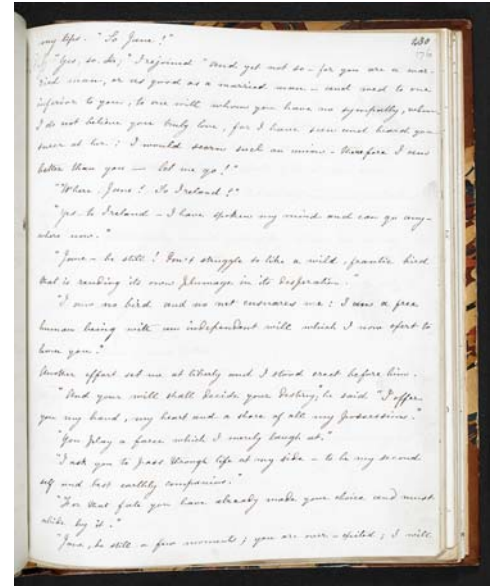 my lips. "So Jane!"
230
176
"Yes, so, Sir," I rejoined "and yet not so - for you are a mar-
ried man, or as good as a married man - and wed to one
inferior to you, to one with whom you have no sympathy, whom
I do not believe you truly love, for I have seen and heard you
sneer at her: I would scorn such an union - therefore I am
better than you — let me go!"
"Where Jane? To Ireland?"
"Yes - to Ireland - I have spoken my mind and can go any-
where now."
"Jane - be still! Don't struggle so like a wild, frantic bird
that is rending its own plumage in its desperation."
"I am no bird and no net ensnares me: I am a free
human being with an independant will which I now exert to
leave you."
Another effort set me at liberty and I stood erect before him.
"And your will shall decide your destiny," he said "I offer
you my hand, my heart and a share of all my possessions."
"You play a farce which I merely laugh at."
"I ask you to pass through life at my side - to be my second
self and best earthly companion."
"For that fate you have already made your choice and must
abide by it."
"Jane, be still a few moments; you are over-excited; I will